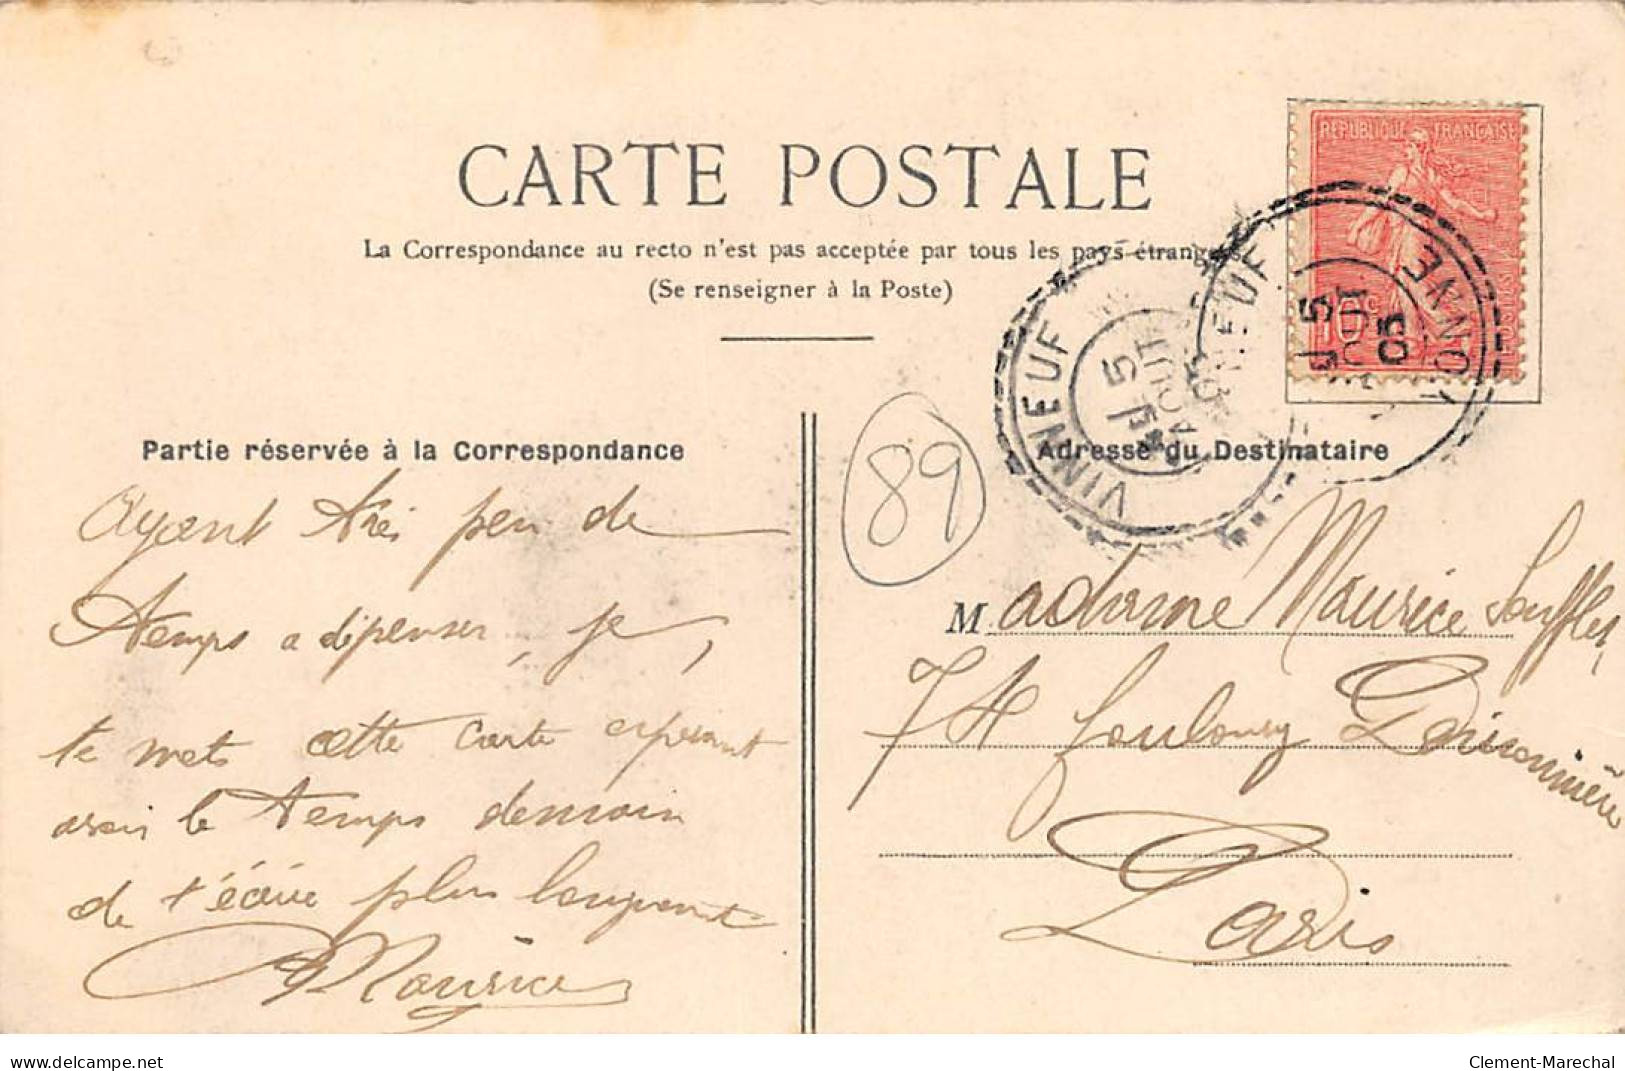 CARTE POSTALE
La Correspondance au recto n'est pas acceptée par tous les pays étrangers
(Se renseigner à la Poste)
REPUBLIQUE FRANÇAISE
10c
VINNEUF
5
AOUT
05
VINNEUF YONNE
5
AOUT
05
Partie réservée à la Correspondance
Ayant très peu de
temps a dépenser, je
te mets cette carte espérant
avoir le temps demain
de t'écrire plus longuement
Maurice
89
Adresse du Destinataire
Madame Maurice
74 Poissonnière
Paris
www.delcampe.net
Clement-Marechal